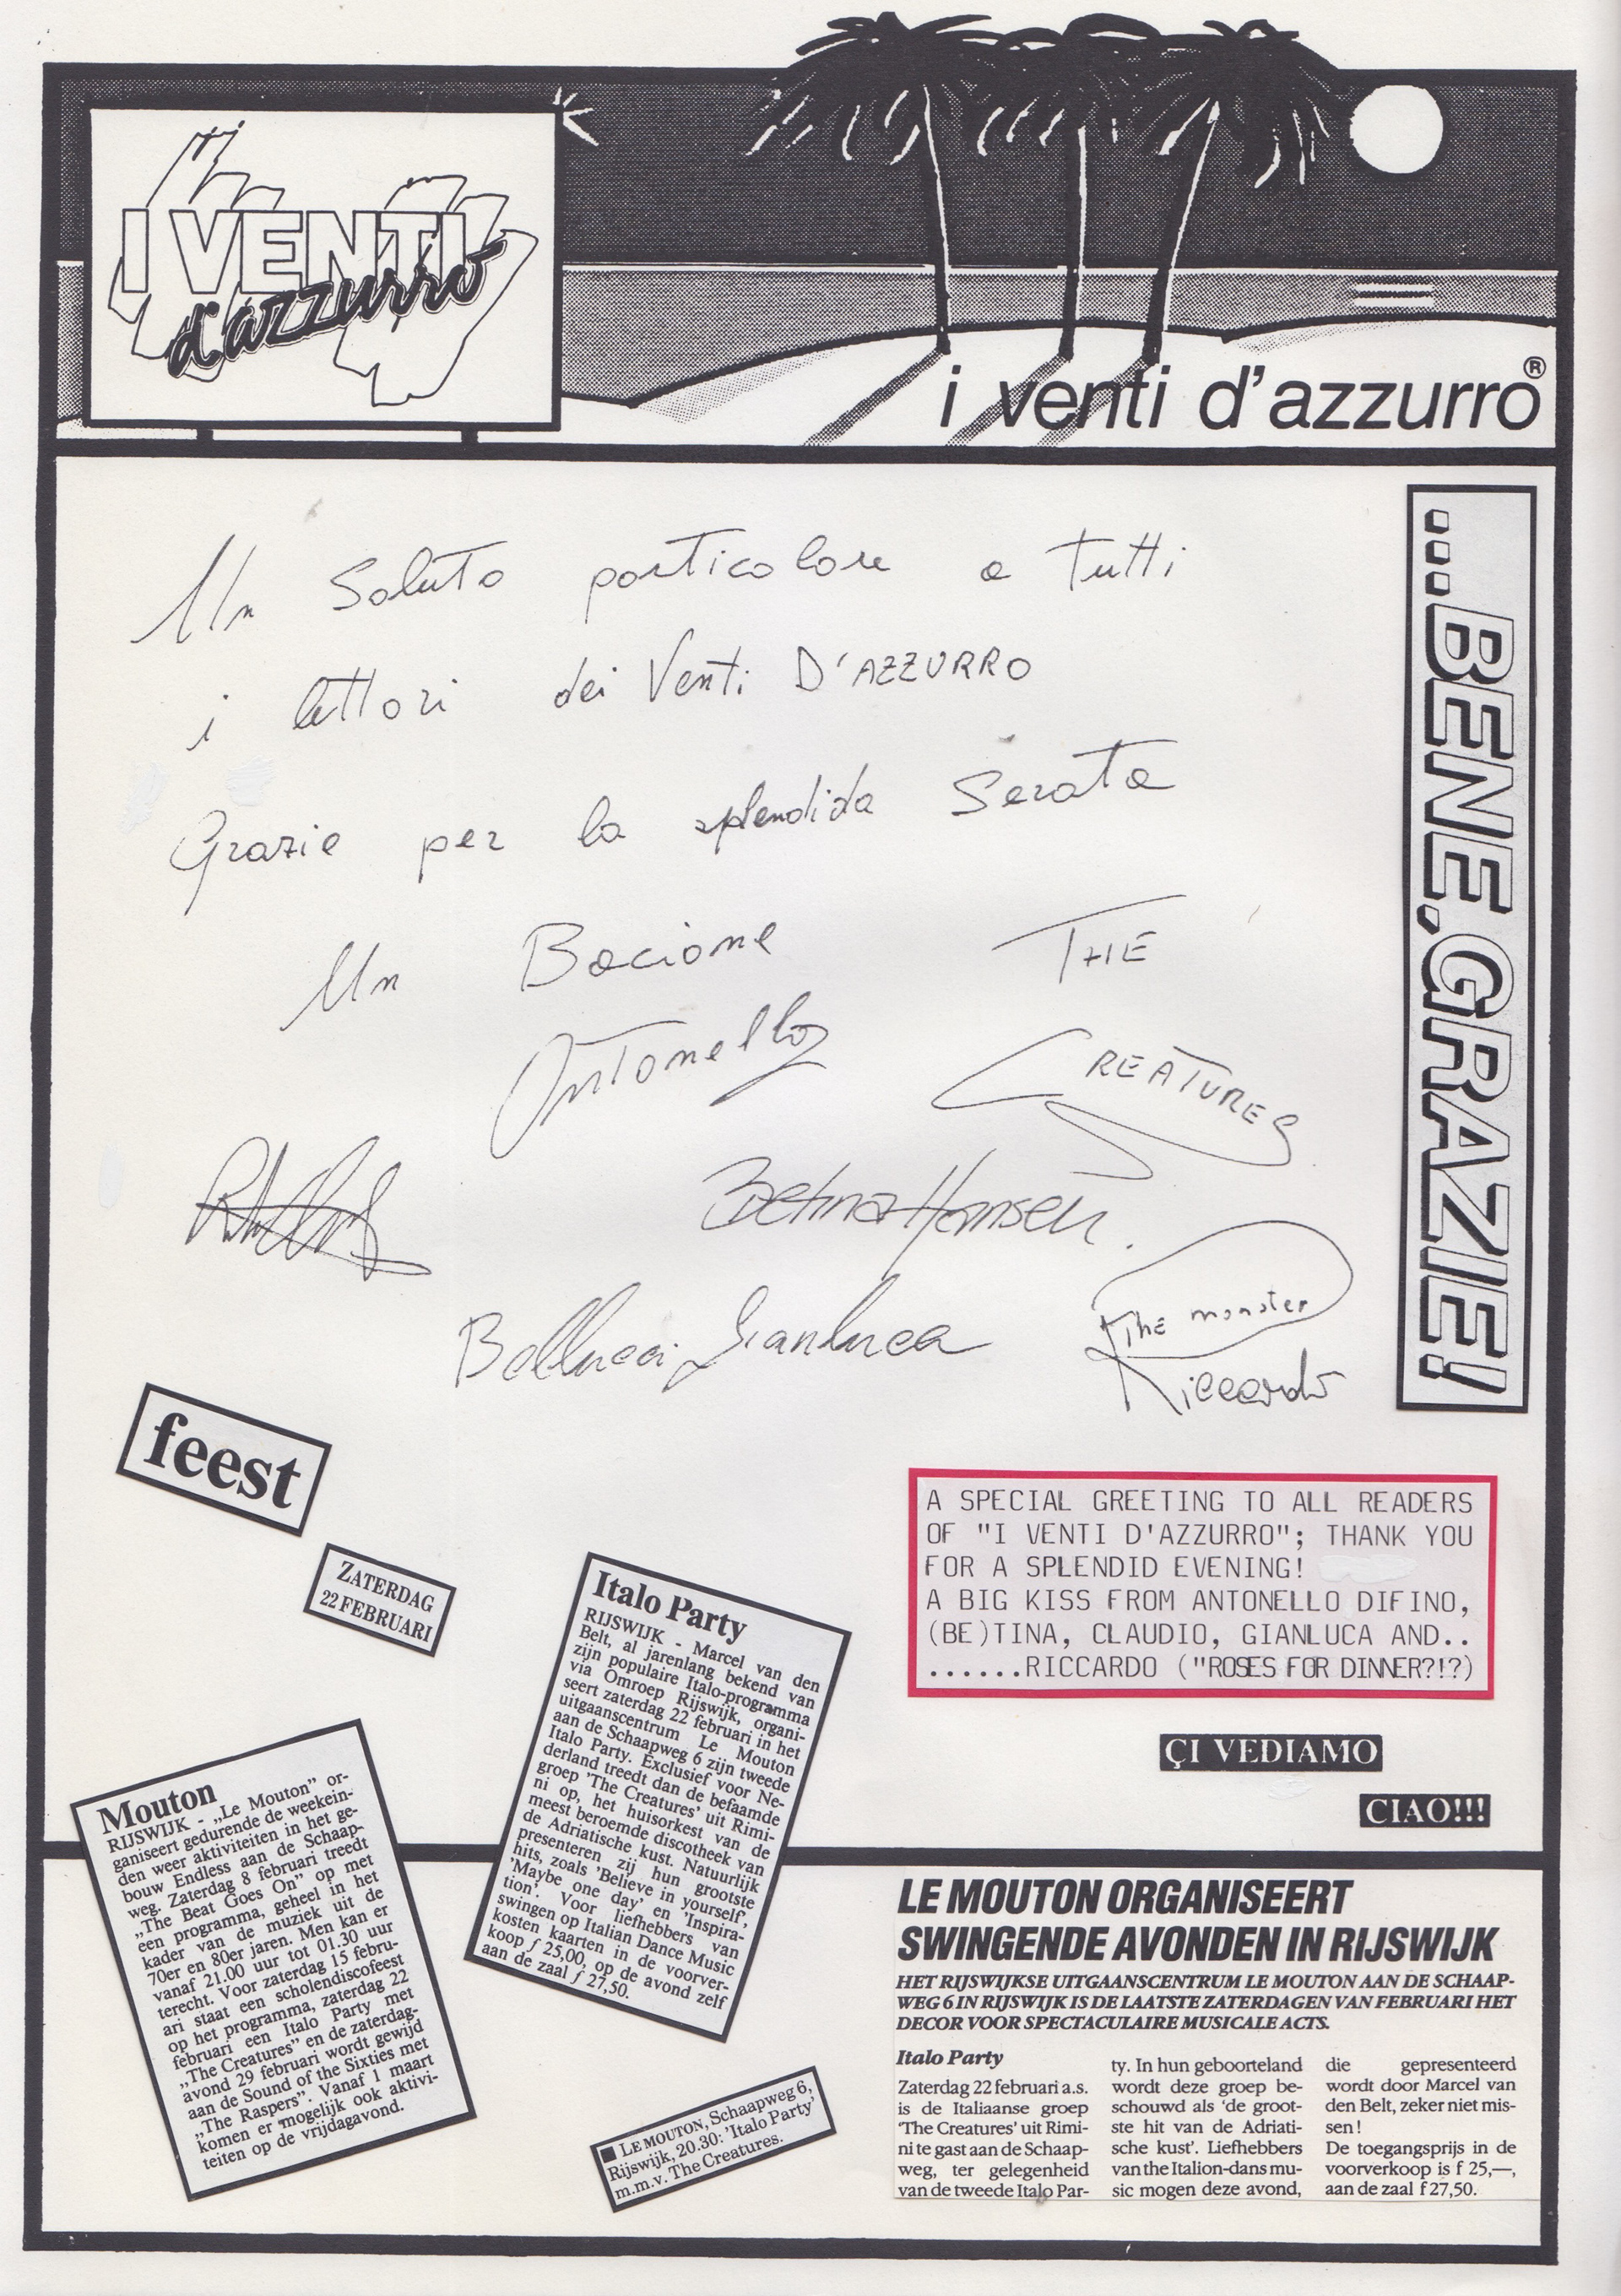 I VENTI
d'azzurro
i venti d'azzurro®
...BENE, GRAZIE!
Un Saluto particolare a Tutti
i lettori dei Venti D'AZZURRO
Grazie per la splendida Serata
Un Bacione THE
Antonello CREATURES
Betina Hansen.
Bellucci Gianluca
The monster
Riccardo
feest
ZATERDAG
22 FEBRUARI
A SPECIAL GREETING TO ALL READERS
OF "I VENTI D'AZZURRO"; THANK YOU
FOR A SPLENDID EVENING!
A BIG KISS FROM ANTONELLO DIFINO,
(BE)TINA, CLAUDIO, GIANLUCA AND..
......RICCARDO ("ROSES FOR DINNER?!?)
ÇI VEDIAMO
CIAO!!!
Italo Party
RIJSWIJK - Marcel van den
Belt, al jarenlang bekend van
zijn populaire Italo-programma
via Omroep Rijswijk, organi-
seert zaterdag 22 februari in het
uitgaanscentrum Le Mouton
aan de Schaapweg 6 zijn tweede
Italo Party. Exclusief voor Ne-
derland treedt dan de befaamde
groep 'The Creatures' uit Rimi-
ni op, het huisorkest van de
meest beroemde discotheek van
de Adriatische kust. Natuurlijk
presenteren zij hun grootste
hits, zoals 'Believe in yourself',
'Maybe one day' en 'Inspira-
tion'. Voor liefhebbers van
swingen op Italian Dance Music
kosten kaarten in de voorver-
koop ƒ 25,00, op de avond zelf
aan de zaal ƒ 27,50.
Mouton
RIJSWIJK - „Le Mouton” or-
ganiseert gedurende de weekein-
den weer aktiviteiten in het ge-
bouw Endless aan de Schaap-
weg. Zaterdag 8 februari treedt
„The Beat Goes On” op met
een programma, geheel in het
kader van de muziek uit de
70er en 80er jaren. Men kan er
vanaf 21.00 uur tot 01.30 uur
terecht. Voor zaterdag 15 febru-
ari staat een scholendiscofeest
op het programma, zaterdag 22
februari een Italo Party met
„The Creatures” en de zaterdag-
avond 29 februari wordt gewijd
aan de Sound of the Sixties met
„The Raspers”. Vanaf 1 maart
komen er mogelijk ook aktivi-
teiten op de vrijdagavond.
■ LE MOUTON, Schaapweg 6,
Rijswijk, 20.30: 'Italo Party'
m.m.v. The Creatures.
LE MOUTON ORGANISEERT
SWINGENDE AVONDEN IN RIJSWIJK
HET RIJSWIJKSE UITGAANSCENTRUM LE MOUTON AAN DE SCHAAP-
WEG 6 IN RIJSWIJK IS DE LAATSTE ZATERDAGEN VAN FEBRUARI HET
DECOR VOOR SPECTACULAIRE MUSICALE ACTS.
Italo Party
Zaterdag 22 februari a.s.
is de Italiaanse groep
'The Creatures' uit Rimi-
ni te gast aan de Schaap-
weg, ter gelegenheid
van de tweede Italo Par-
ty. In hun geboorteland
wordt deze groep be-
schouwd als 'de groot-
ste hit van de Adriati-
sche kust'. Liefhebbers
van the Italion-dans mu-
sic mogen deze avond,
die gepresenteerd
wordt door Marcel van
den Belt, zeker niet mis-
sen!
De toegangsprijs in de
voorverkoop is f 25,—,
aan de zaal f 27,50.